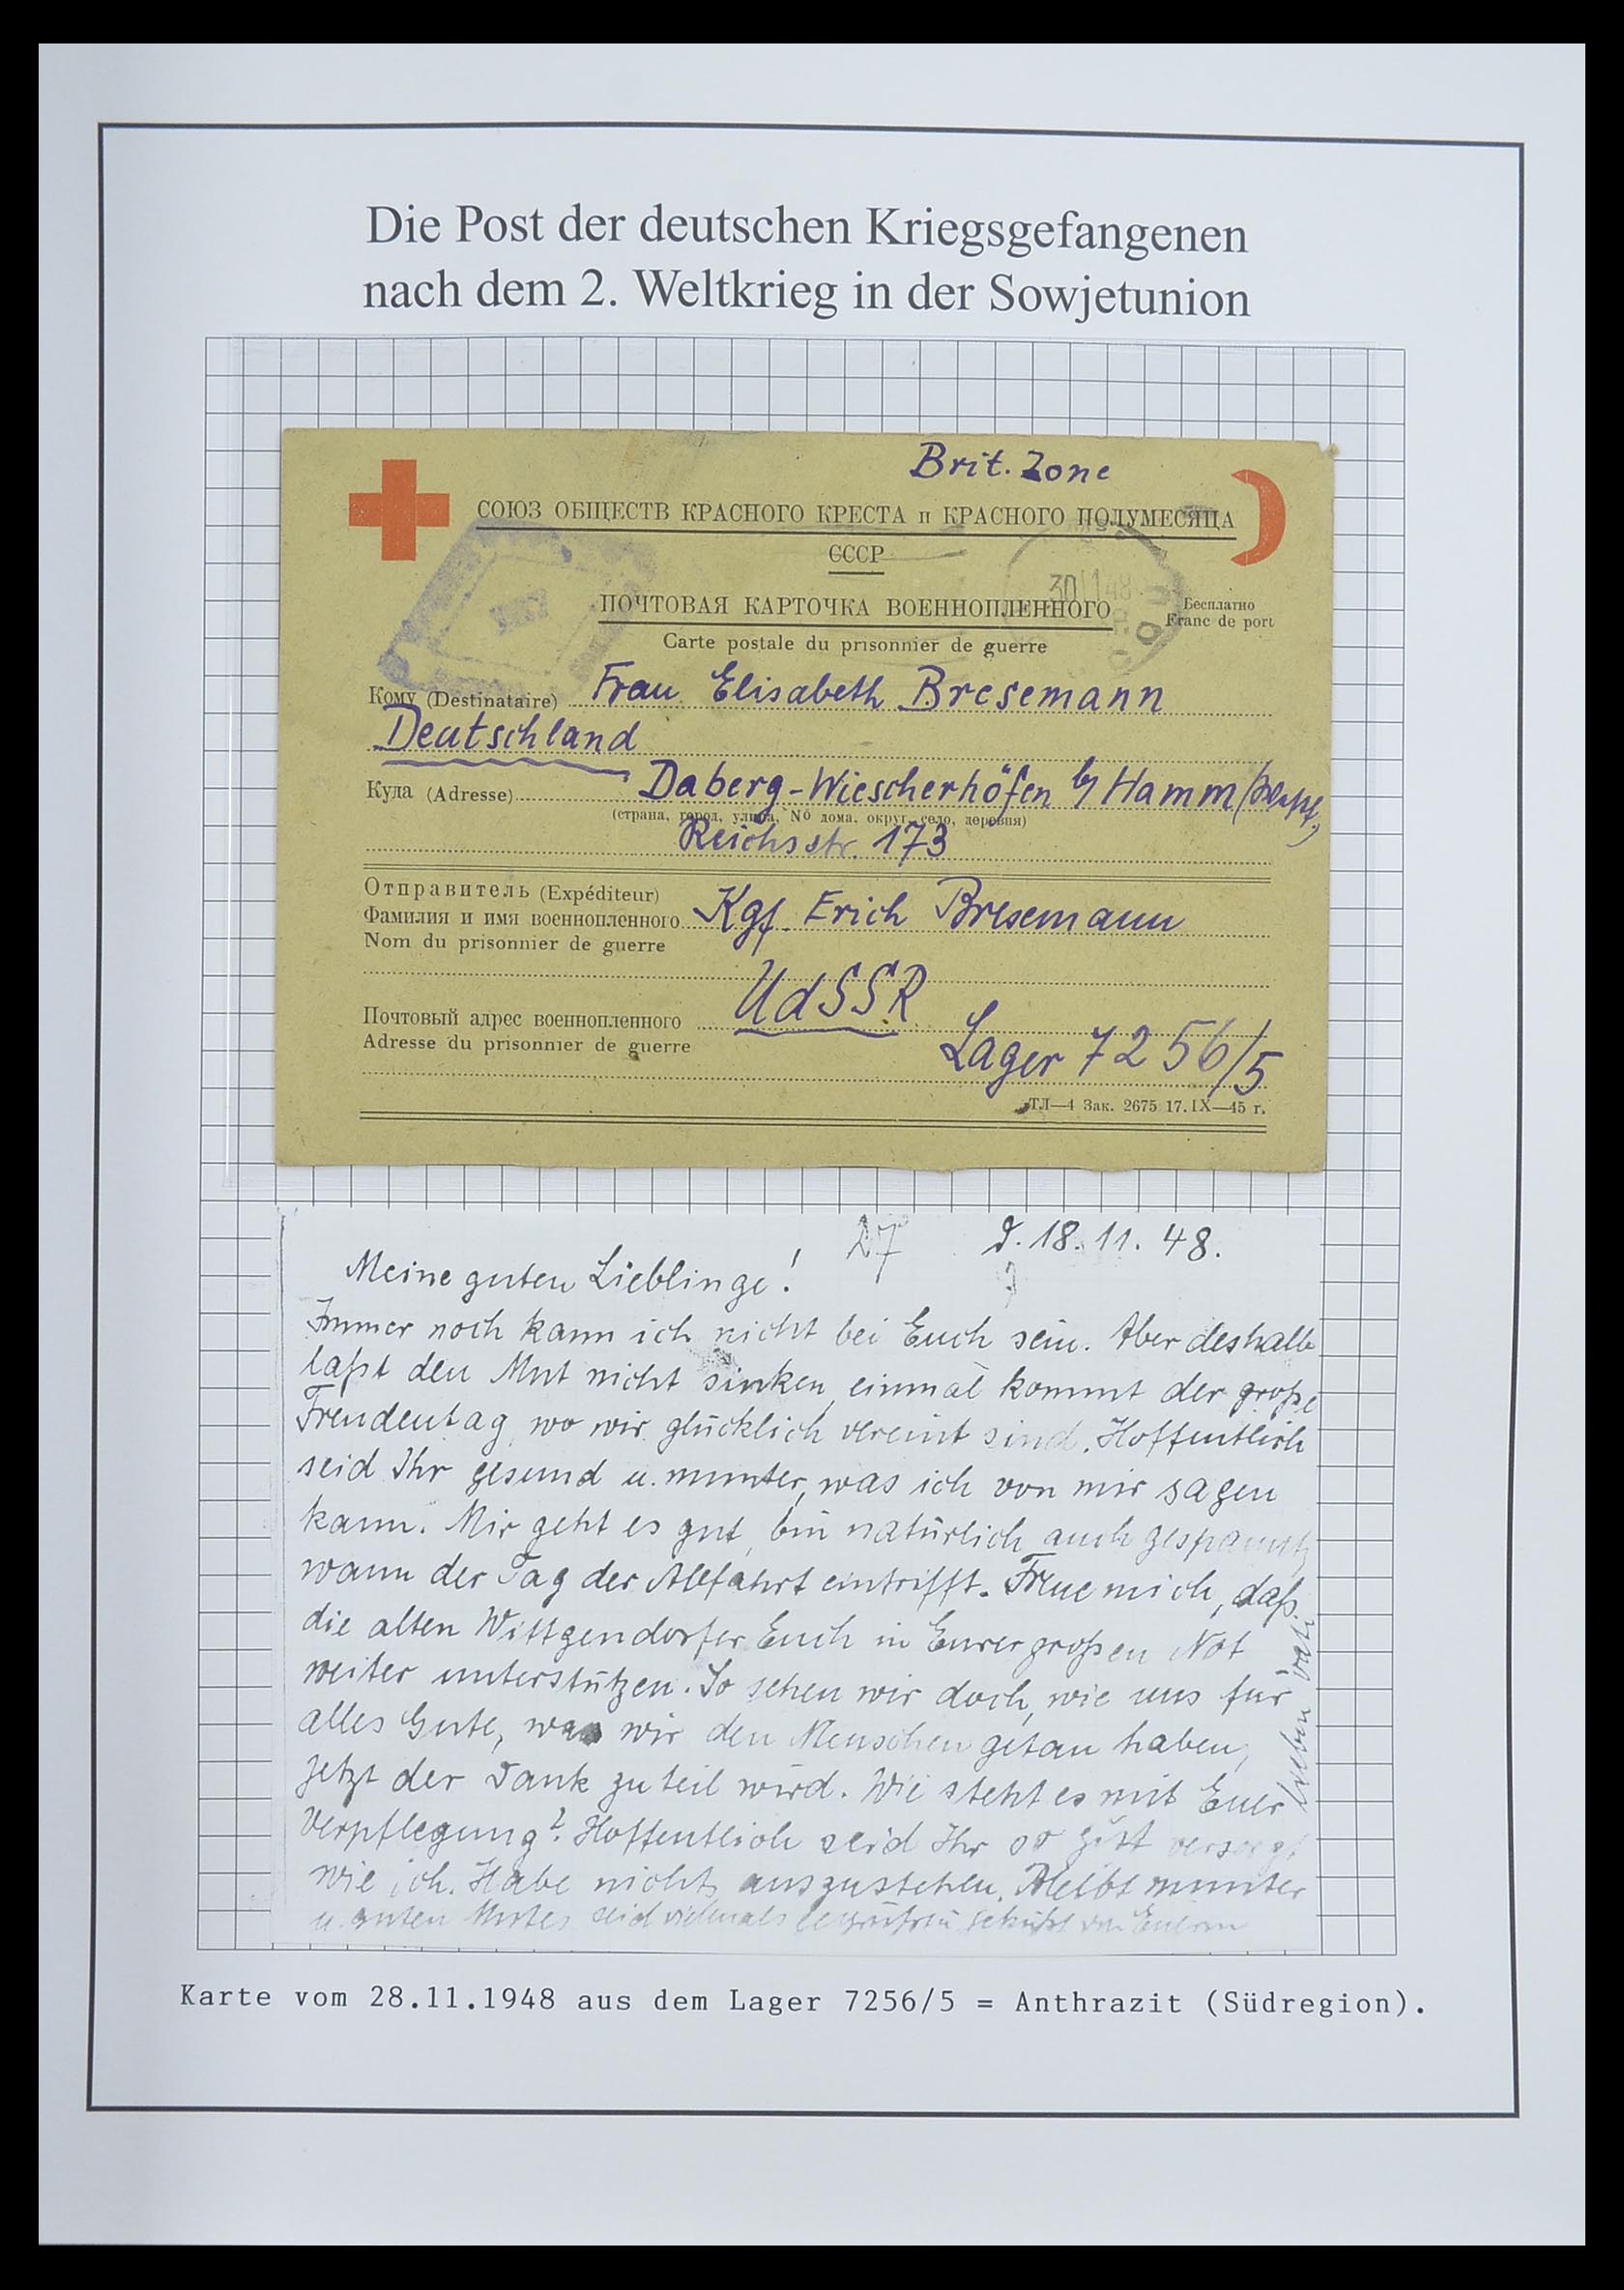 Die Post der deutschen Kriegsgefangenen
nach dem 2. Weltkrieg in der Sowjetunion
Brit. Zone
СОЮЗ ОБЩЕСТВ КРАСНОГО КРЕСТА и КРАСНОГО ПОЛУМЕСЯЦА
СССР
30 11 48
ПОЧТОВАЯ КАРТОЧКА ВОЕННОПЛЕННОГО
Бесплатно
Franc de port
Carte postale du prisonnier de guerre
Кому (Destinataire) Frau Elisabeth Bresemann
Deutschland
Куда (Adresse) Daberg-Wiescherhöfen b/ Hamm (Westf.)
(страна, город, улица, № дома, округ, село, деревня)
Reichsstr. 173
Отправитель (Expéditeur)
Фамилия и имя военнопленного Kgf. Erich Bresemann
Nom du prisonnier de guerre
UdSSR
Почтовый адрес военнопленного
Lager 7256/5
Adresse du prisonnier de guerre
ТЛ—4 Зак. 2675 17.IX—45 г.
27 d. 18. 11. 48.
Meine guten Lieblinge!
Immer noch kann ich nicht bei Euch sein. Aber deshalb
laßt den Mut nicht sinken, einmal kommt der große
Freudentag, wo wir glücklich vereint sind. Hoffentlich
seid Ihr gesund u. munter, was ich von mir sagen
kann. Mir geht es gut, bin natürlich auch gespannt,
wann der Tag der Abfahrt eintrifft. Freue mich, daß
die alten Wittgendorfer Euch in Eurer großen Not
weiter unterstützen. So sehen wir doch, wie uns für
alles Gute, was wir den Menschen getan haben,
jetzt der Dank zuteil wird. Wie steht es mit Eurer
Verpflegung? Hoffentlich seid Ihr so gut versorgt
wie ich. Habe nichts auszustehen. Bleibt munter
u. guten Mutes seid vielmals gegrüßt u. geküßt von Eurem
lieben Vati
Karte vom 28.11.1948 aus dem Lager 7256/5 = Anthrazit (Südregion).